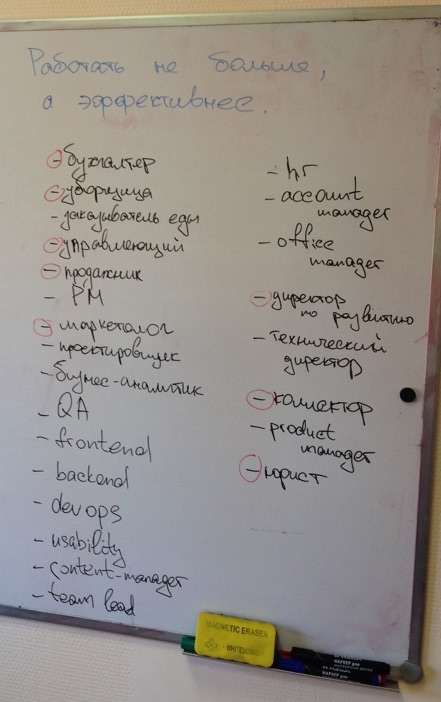 Работать не больше,
а эффективнее.
- бухгалтер
- уборщица
- заказыватель еды
- управляющий
- продажник
- PM
- маркетолог
- проектировщик
- бизнес-аналитик
- QA
- frontend
- backend
- devops
- usability
- content-manager
- team lead
- hr
- account
manager
- office
manager
- директор
по развитию
- технический
директор
- коллектор
- product
manager
- юрист
MAGNETIC ERASER
WHITEBOARD
МАРКЕР ДЛЯ